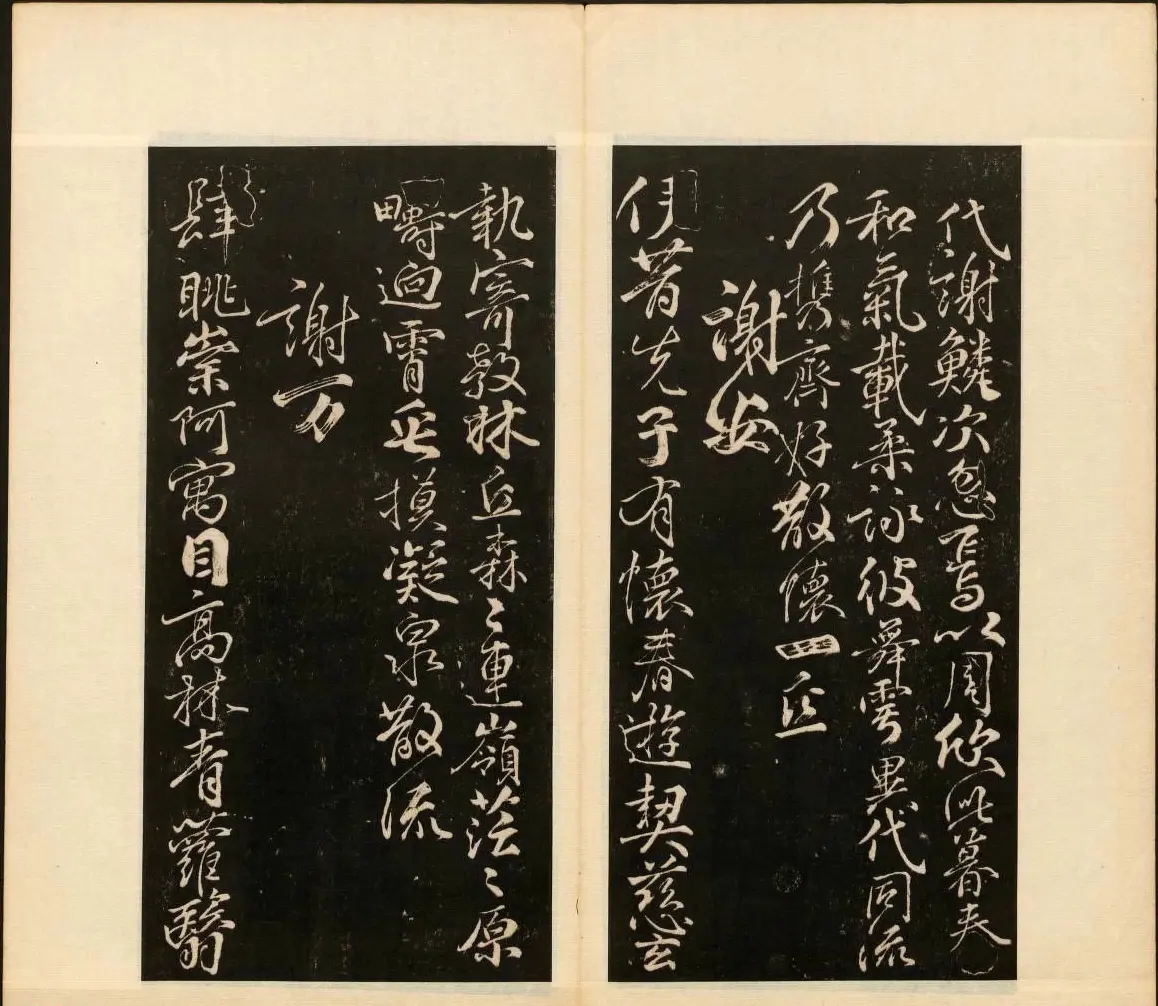 代謝鱗次忽焉以周欣此暮春
和氣載柔詠彼舞雩異代同流
乃攜齊好散懷一丘
謝安
伊昔先子有懷春遊契茲言
執寄敖林丘森〻連嶺茫〻原
疇迥霄垂凝泉散流
謝万
肆眺崇阿寓目高林青蘿翳